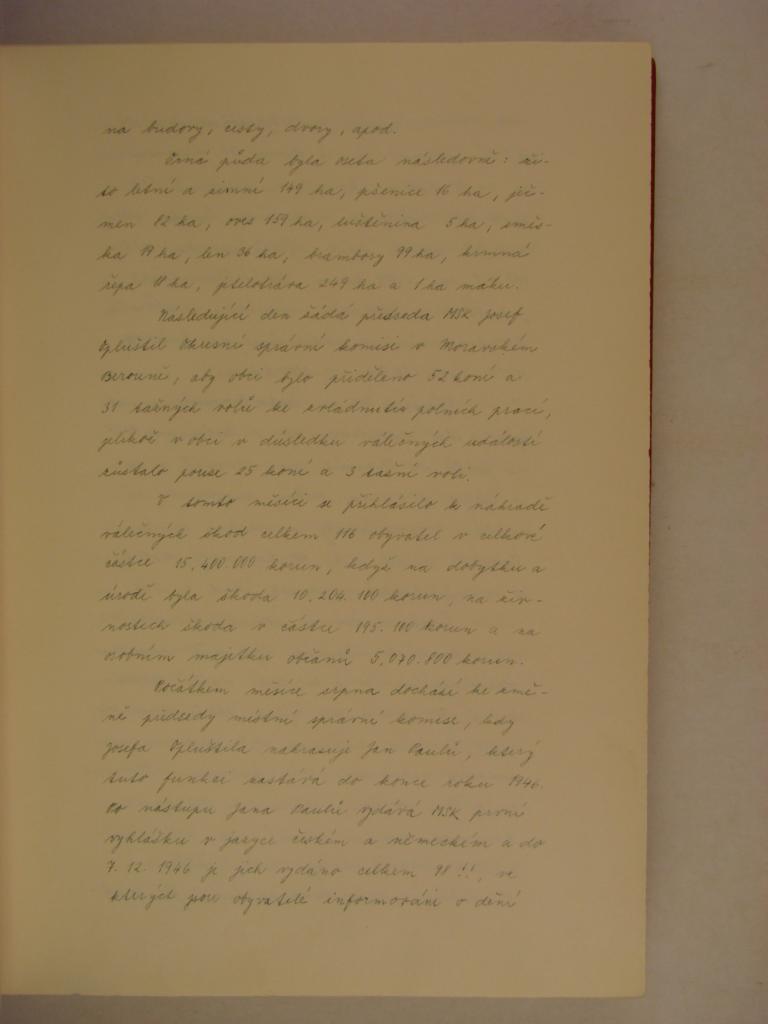 na budovy, cesty, dvory, apod.
Orná půda byla oseta následovně: ži-
to letní a zimní 149 ha, pšenice 16 ha, ječ-
men 82 ha, oves 159 ha, luštěnina 5 ha, směs-
ka 19 ha, len 36 ha, brambory 99 ha, krmná
řepa 11 ha, jetelotráva 249 ha a 1 ha máku.
Následující den žádá předseda MSK Josef
Opluštil Okresní správní komisi v Moravském
Berouně, aby obci bylo přiděleno 52 koní a
31 tažných volů ke zvládnutí polních prací,
jelikož v obci v důsledku válečných událostí
zůstalo pouze 25 koní a 3 tažní voli.
V tomto měsíci se přihlásilo k náhradě
válečných škod celkem 116 obyvatel v celkové
částce 15.400.000 korun, když na dobytku a
úrodě byla škoda 10.204.100 korun, na živ-
nostech škoda v částce 195.100 korun a na
osobním majetku občanů 5,070.800 korun.
Počátkem měsíce srpna dochází ke změ-
ně předsedy místní správní komise, kdy
Josefa Opluštila nahrazuje Jan Paulů, který
tuto funkci zastává do konce roku 1946.
Po nástupu Jana Paulů vydává MSK první
vyhlášku v jazyce českém a německém a do
7.12.1946 je jich vydáno celkem 98!!, ve
kterých jsou obyvatelé informováni o dění